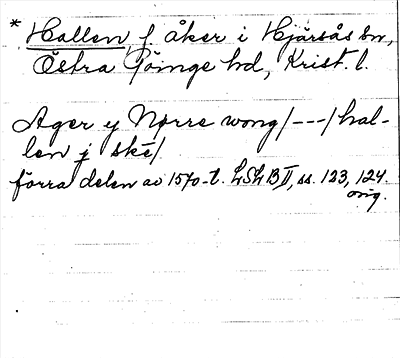 * Hallen, f. åker i Hjärsås sn,
Östra Göinge hd, Krist. l.
Ager y Nørre wong/---/hal-
len j ske/
förra delen av 1570-t. LSLB II, ss. 123, 124.
orig.